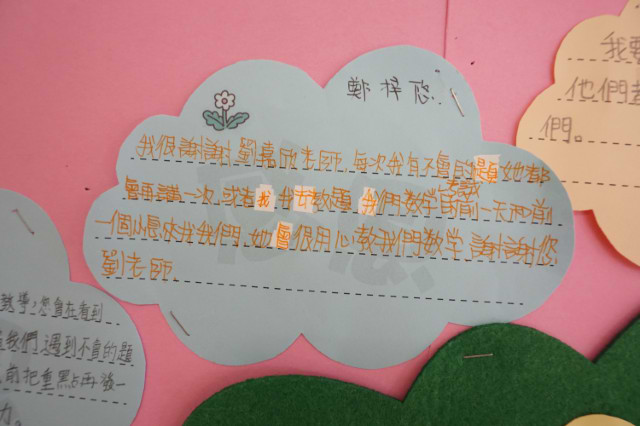 鄭梓
我很謝謝劉嘉欣老師,每次我有不會的題她都
會再講一次,或者我 我 教題 我們數學考試前一天和前
一個 我們,她會很用心教我們數學,謝謝您
劉老師
我要
他們
們。
學,您會在看到
我們遇到不會的題
前把重點再 一
力。